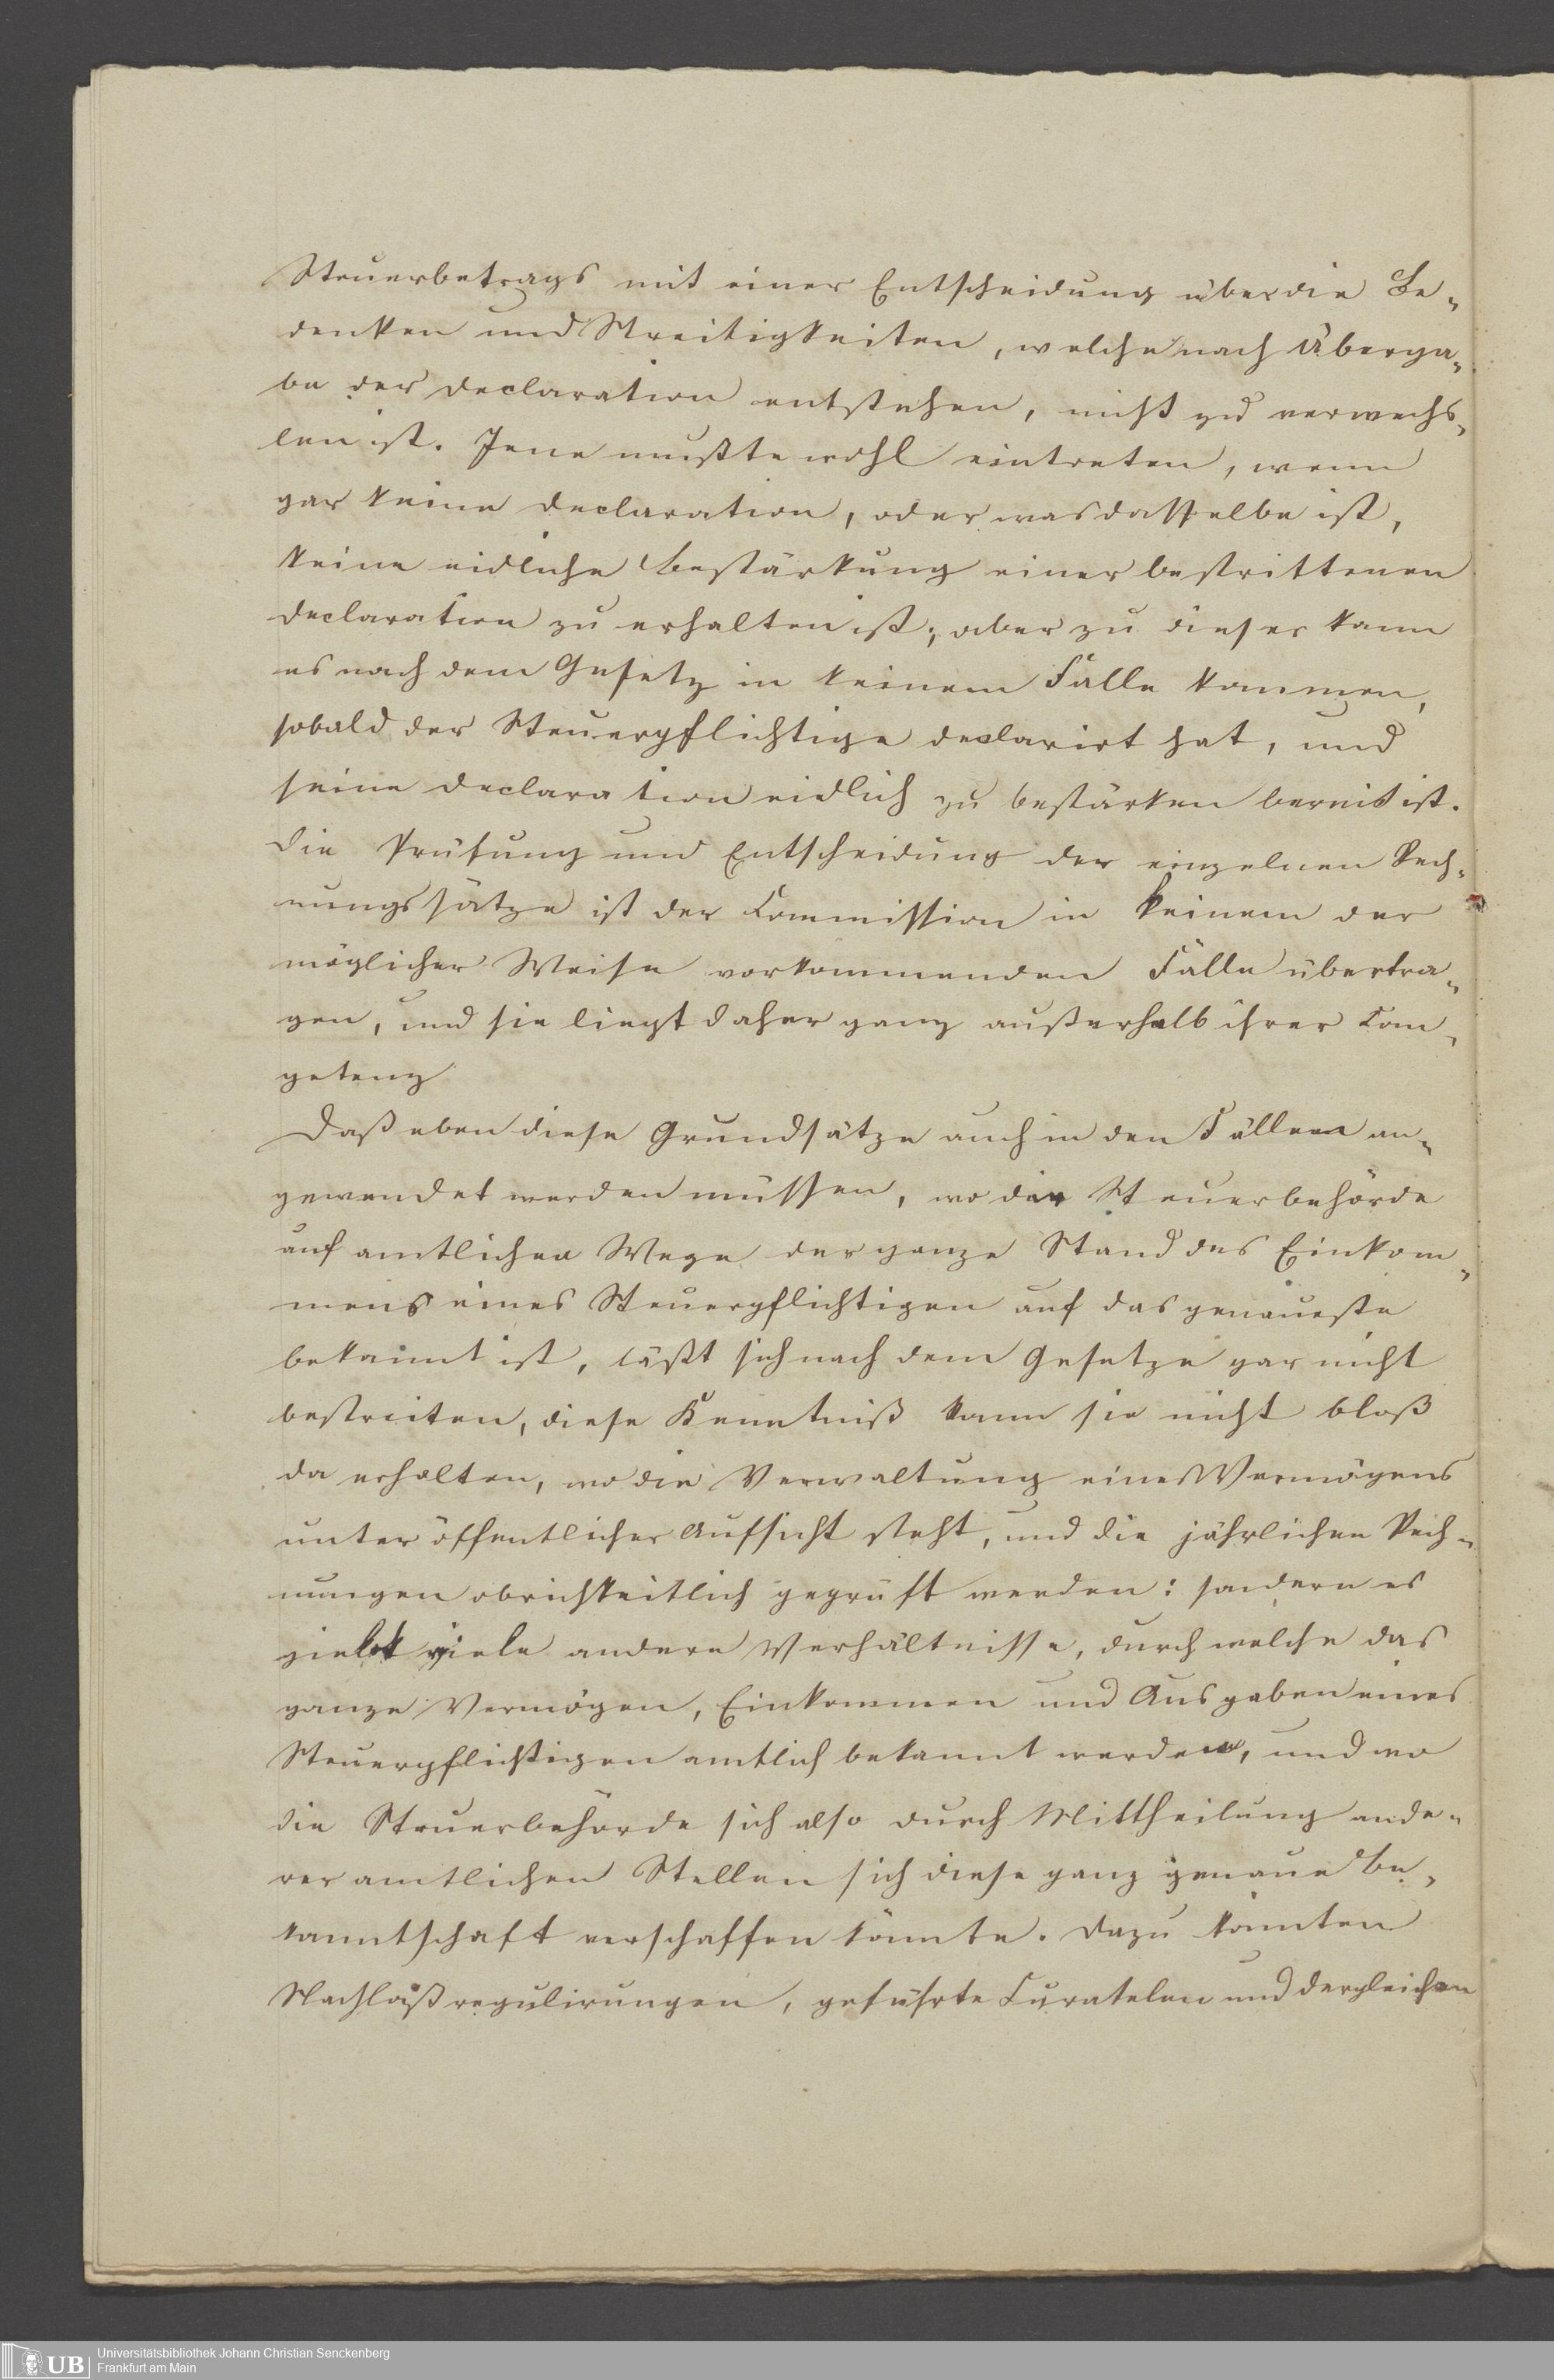 Steuerbetrags mit einer Entscheidung über die Be-
denken und Streitigkeiten, welche nach Überga-
be der Declaration entstehen, nicht zu verwechs-
len ist. Jene mußte wohl eintreten, wenn
gar keine Declaration, oder was dasselbe ist,
keine eidliche Bestärkung einer bestrittenen
Declaration zu erhalten ist; aber zu dieser kann
es nach dem Gesetz in keinem Falle kommen,
sobald der Steuerpflichtige declarirt hat, und
seine Declaration eidlich zu bestärken bereit ist.
Die Prüfung und Entscheidung der einzelnen Rech-
nungssätze ist der Commission in keinem der
möglicher Weise vorkommenden Fälle übertra-
gen, und sie liegt daher ganz außerhalb ihrer Com-
petenz
Daß eben diese Grundsätze auch in den Fällen an-
gewendet werden müssen, wo der Steuerbehörde
auf amtlichen Wege der ganze Stand des Einkom-
mens eines Steuerpflichtigen auf das genaueste
bekannt ist, läßt sich nach dem Gesetze gar nicht
bestreiten, diese Kenntniß kann sie nicht bloß
da erhalten, wo die Verwaltung eines Vermögens
unter öffentlicher Aufsicht steht, und die jährlichen Rech-
nungen obrichkeitlich geprüft werden: sondern es
giebt viele andere Verhältnisse, durch welche das
ganze Vermögen, Einkommen und Ausgaben eines
Steuerpflichtigen amtlich bekannt werden, und wo
die Steuerbehörde sich also durch Mittheilung ande-
rer amtlichen Stellen sich diese ganz genaue Be-
kanntschaft verschaffen könnte. Dazu könnten
Nachlaßregulirungen, geführte Curatelen und dergleichen
UB
Universitätsbibliothek Johann Christian Senckenberg
Frankfurt am Main